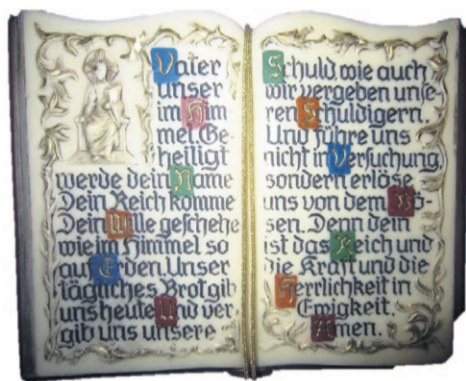 Vater
unser
im Him
mel. Ge-
heiligt
werde dein Name
Dein Reich komme
Dein Wille geschehe
wie im Himmel so
auf Erden. Unser
tägliches Brot gib
uns heute Und ver
gib uns unsere
Schuld wie auch
wir vergeben unse-
ren Schuldigern.
Und führe uns
nicht in Versuchung,
sondern erlöse
uns von dem Bö-
sen. Denn dein
ist das Reich und
die Kraft und die
Herrlichkeit in
Ewigkeit.
Amen.